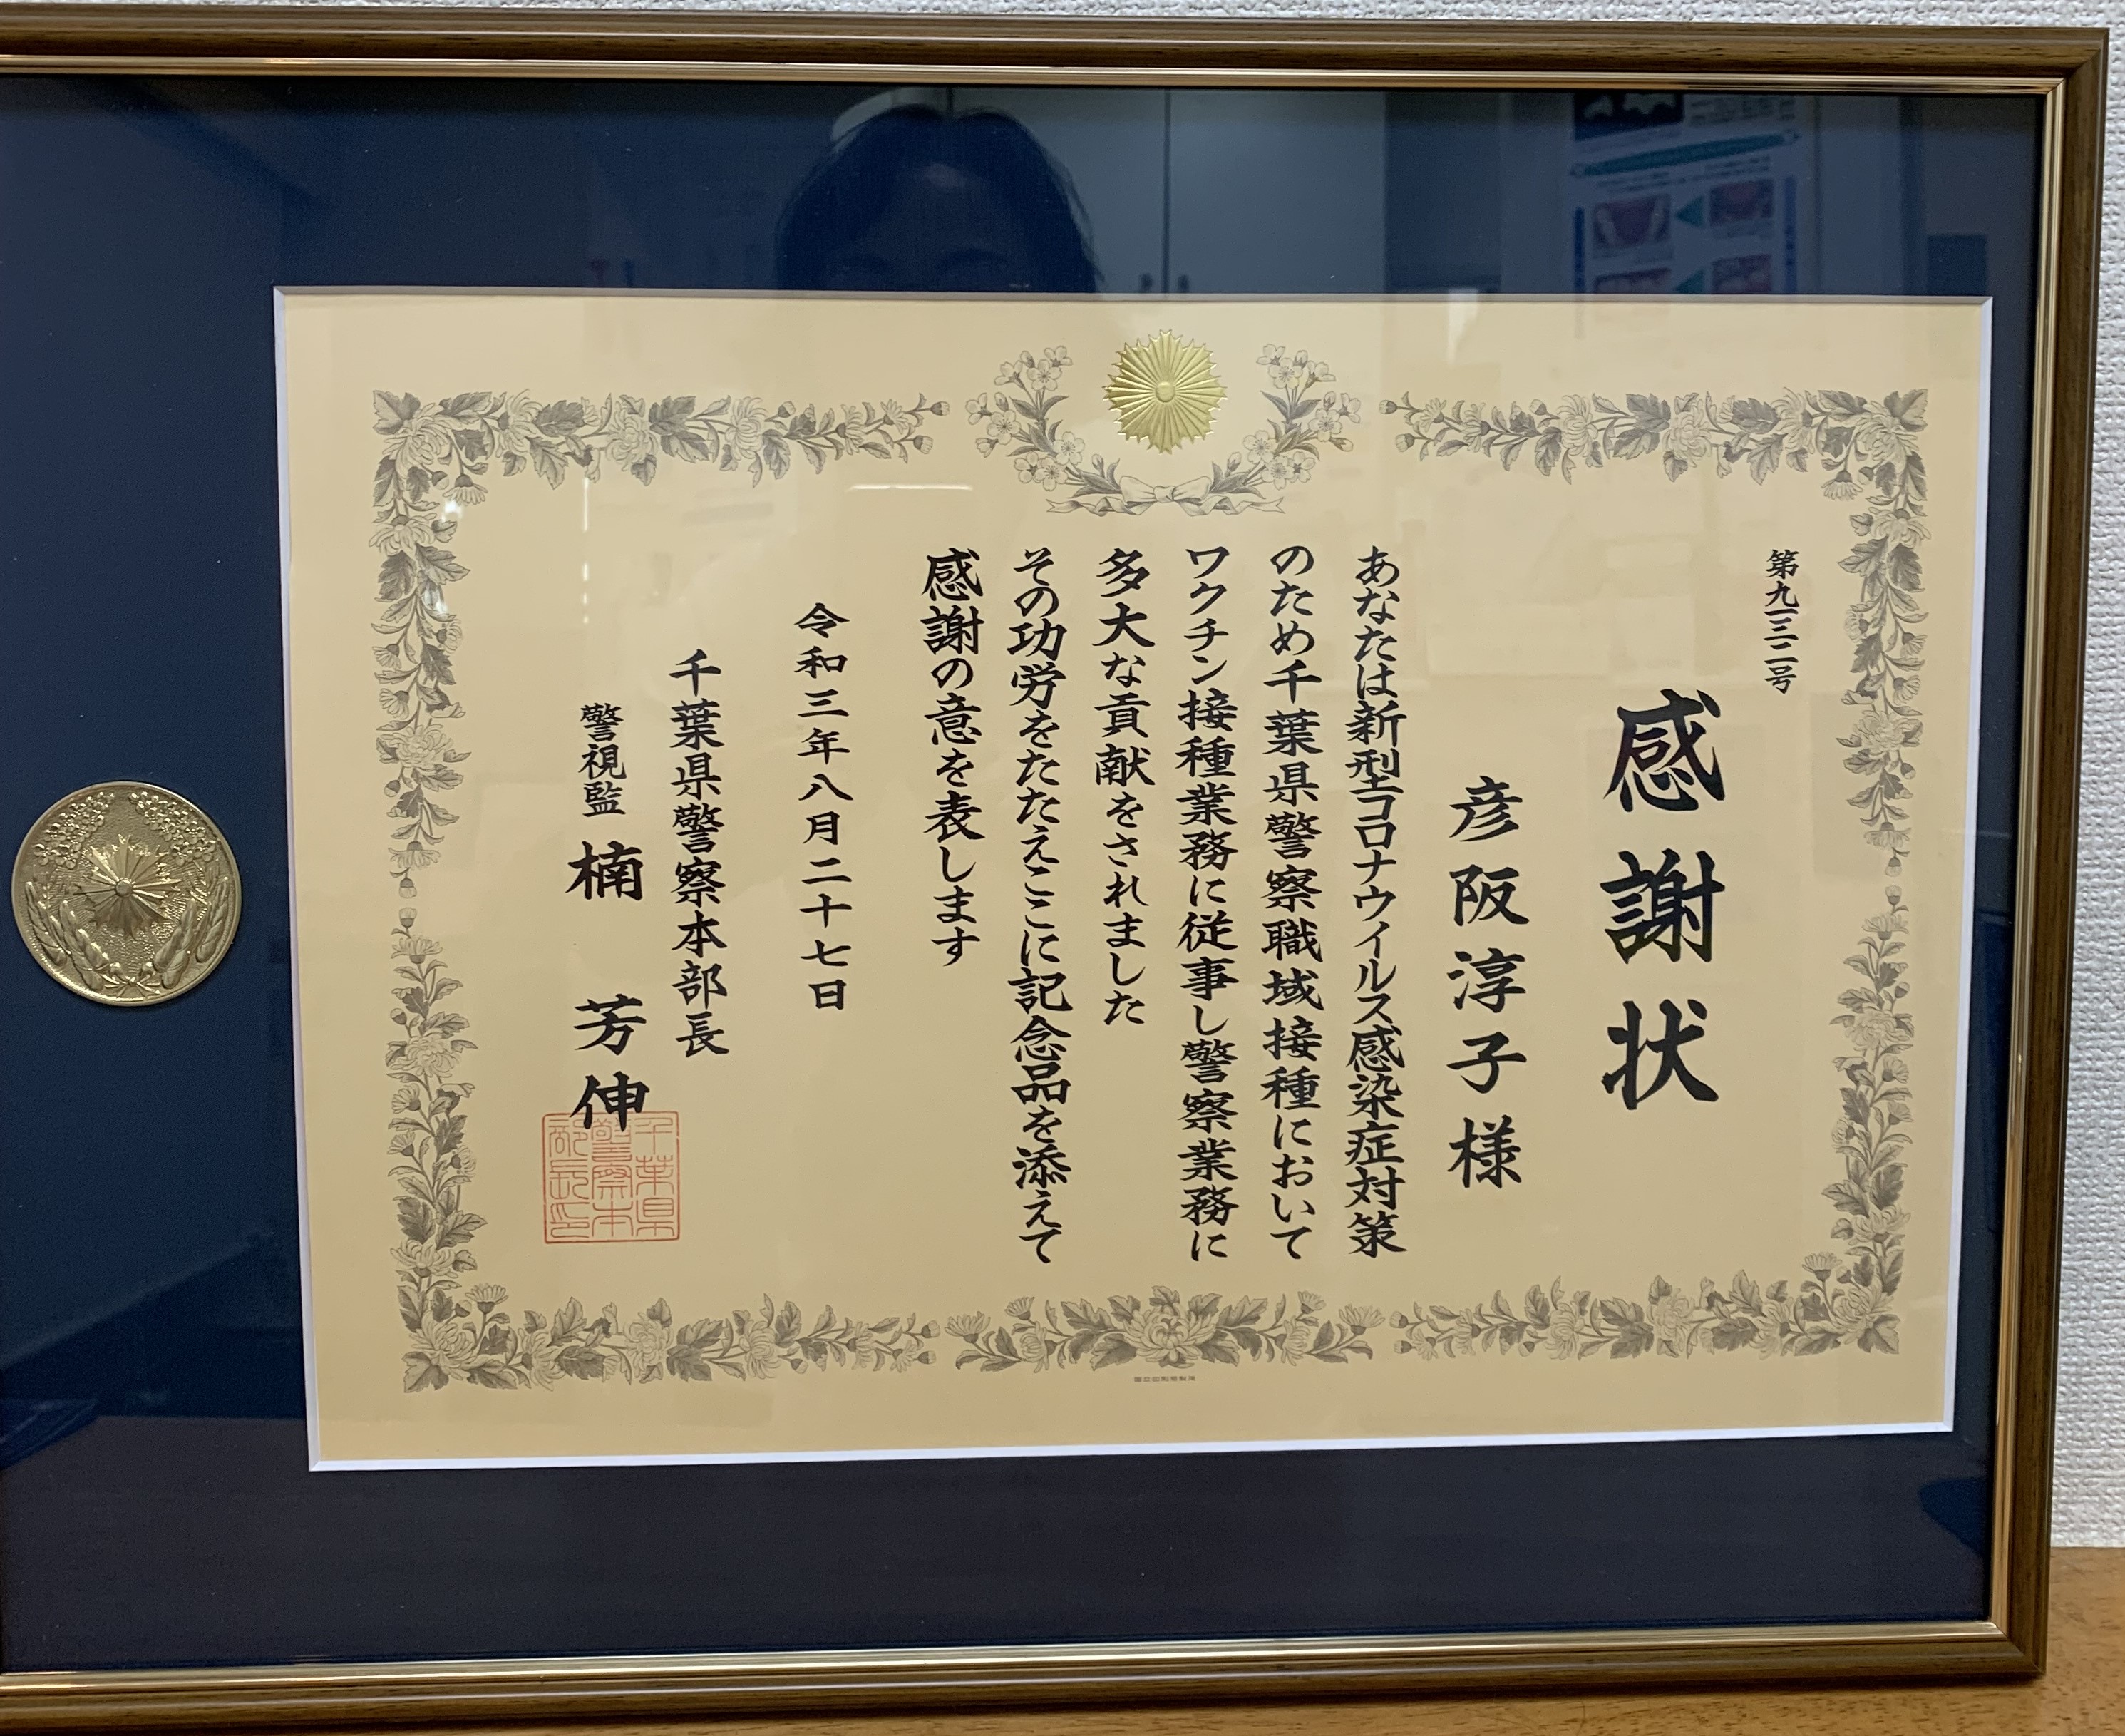 第九三二号
感謝状
彦阪淳子様
あなたは新型コロナウイルス感染症対策
のため千葉県警察職域接種において
ワクチン接種業務に従事し警察業務に
多大な貢献をされました
その功労をたたえここに記念品を添えて
感謝の意を表します
令和三年八月二十七日
千葉県警察本部長
警視監 楠 芳伸
千葉県
警察本
部長印